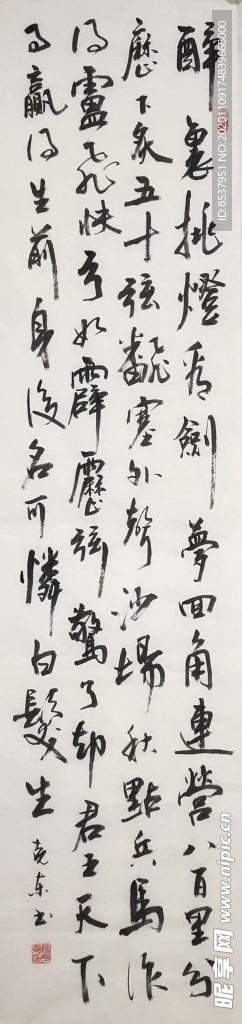 醉裏挑燈看劍夢回角連營八百里分
麾下炙五十弦飜塞外聲沙場秋點兵馬作
的盧飛快弓如霹靂弦驚了却君王天下
事贏得生前身後名可憐白髮生
克东书
ID:8537951 NO:20201109174839666000
昵享网 www.nipic.cn